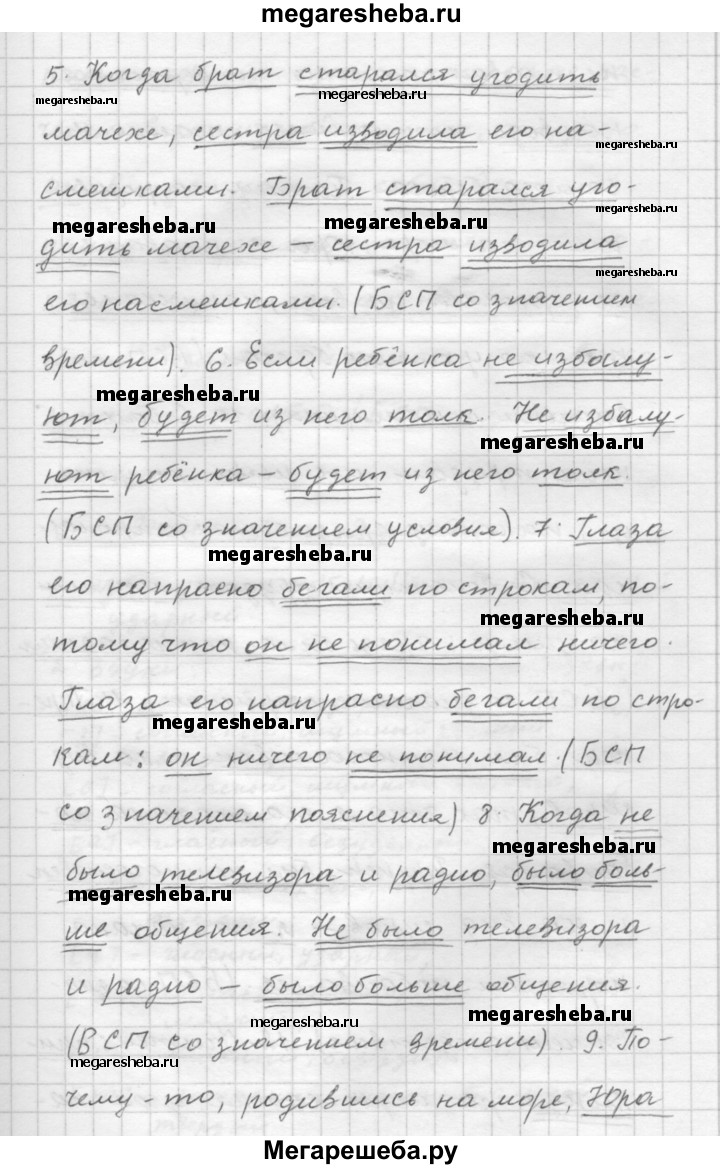 megaresheba.ru
5. Когда брат старался угодить
megaresheba.ru megaresheba.ru
мачехе, сестра изводила его на-
megaresheba.ru
смешками. Брат старался уго-
megaresheba.ru megaresheba.ru
дить мачехе – сестра изводила
megaresheba.ru
его насмешками. (БСП со значением
времени). 6. Если ребёнка не избалу-
megaresheba.ru
ют, будет из него толк. Не избалу-
megaresheba.ru
ют ребёнка – будет из него толк.
(БСП со значением условия). 7. Глаза
megaresheba.ru
его напрасно бегали по строкам, по-
megaresheba.ru
тому что он не понимал ничего.
Глаза его напрасно бегали по стро-
megaresheba.ru
кам: он ничего не понимал. (БСП
со значением пояснения) 8. Когда не
megaresheba.ru
было телевизора и радио, было боль-
megaresheba.ru
ше общения. Не было телевизора
и радио – было больше общения.
megaresheba.ru megaresheba.ru
(БСП со значением времени). 9. По-
megaresheba.ru
чему-то, родившись на море, Юра
Мегарешеба.ру